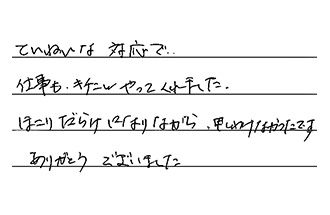 ていねいな 対応で..
仕事も.キチンとやってくれました.
ほこりだらけになりながら、申しわけなかったです
ありがとう ございました